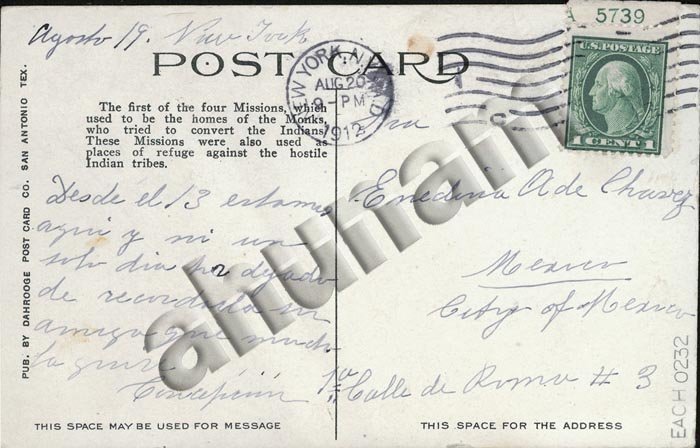 A 5739
Agosto 19. New York
POST CARD
U.S. POSTAGE
1 CENT 1
NEW YORK, N.Y.
AUG 20
9-PM
1912
D
The first of the four Missions, which
used to be the homes of the Monks,
who tried to convert the Indians.
These Missions were also used as
places of refuge against the hostile
Indian tribes.
Desde el 13 estamos
aqui y ni un
solo dia ha dejado
de recordarla su
amiga que mucho
la quiere
Concepción
Sra
Enedina A de Chavez
Mexico
City of Mexico
1a Calle de Roma # 3
PUB. BY DAHROOGE POST CARD CO. SAN ANTONIO TEX.
THIS SPACE MAY BE USED FOR MESSAGE
THIS SPACE FOR THE ADDRESS
EACH 0232
ahuñam